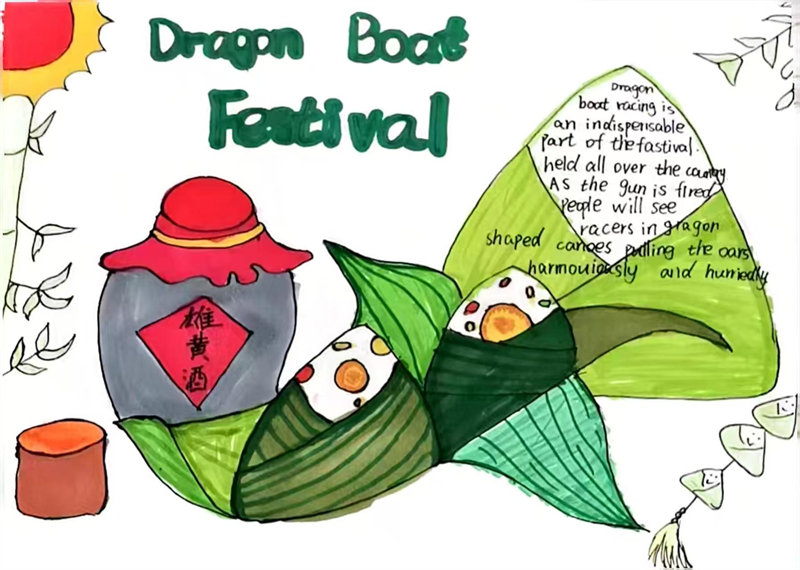 Dragon Boat
Festival
Dragon
boat racing is
an indispensable
part of the fastival.
held all over the country
As the gun is fired
people will see
racers in gragon
shaped canoes pulling the oars
harmouiously and hurriedly
雄
黄
酒